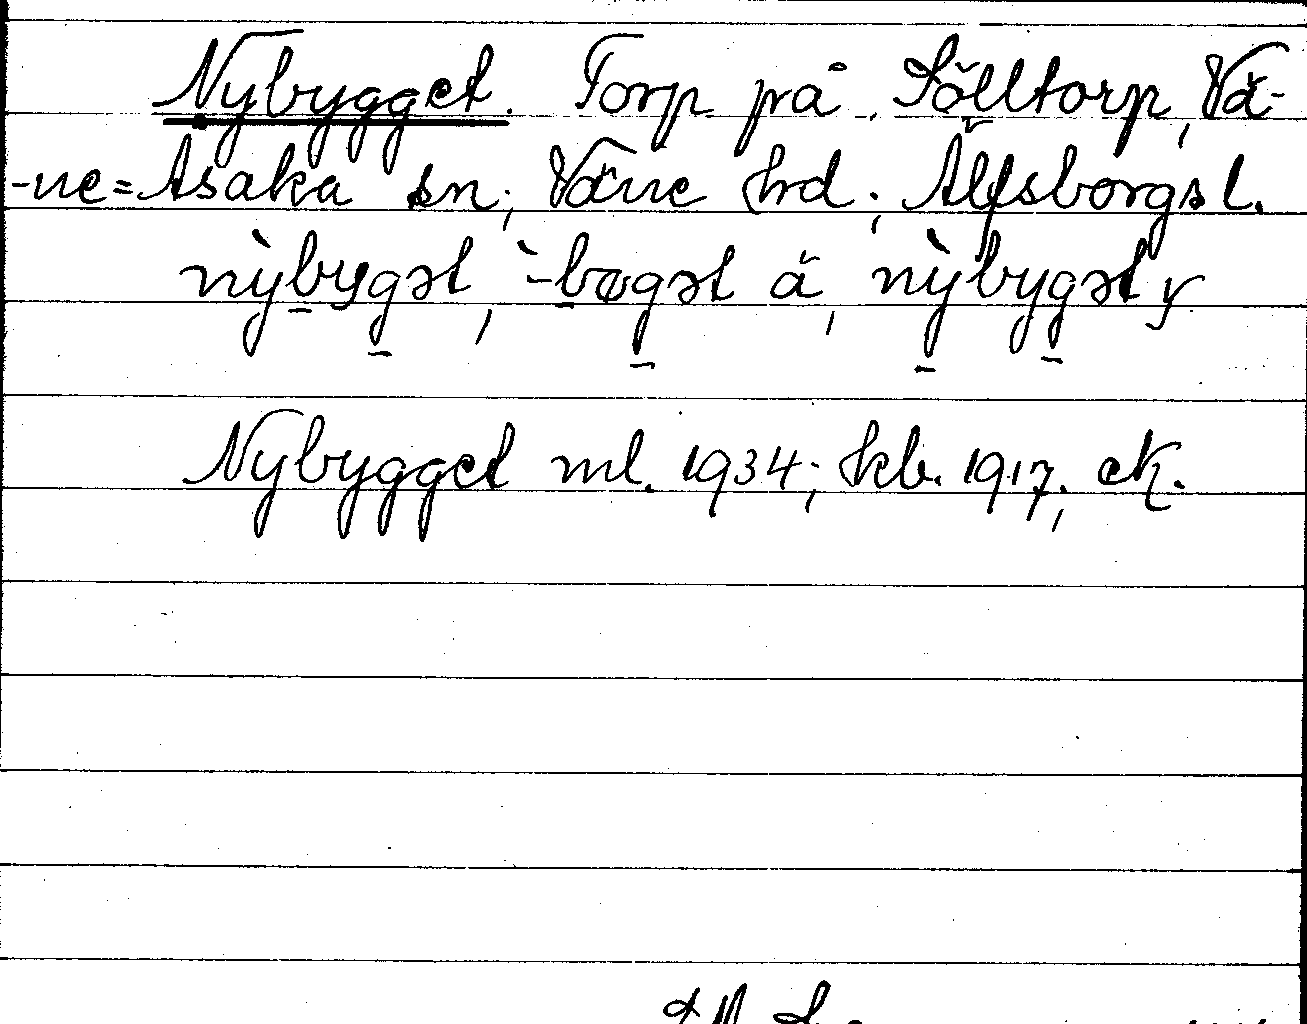 Nybygget. Torp på Sölltorp, Vä-
-ne=Åsaka sn; Väne hrd; Älfsborgs l.
nỳbygət, -bøgət ä, nỳbygət y
Nybygget ml. 1934; kb. 1917, ek.